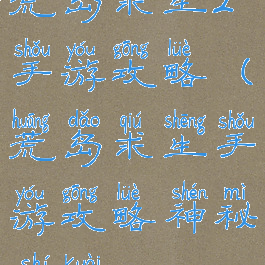 荒岛求生2
shǒu yóu gōng lüè
手游攻略（
huāng dǎo qiú shēng shǒu
荒岛求生手
yóu gōng lüè shén mì
游攻略神秘
shí kuài